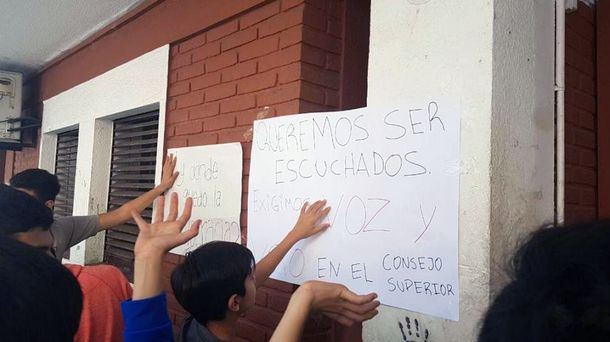 donde
la
QUEREMOS SER
ESCUCHADOS.
EXIGIMOS VOZ Y
VOTO EN EL CONSEJO
SUPERIOR